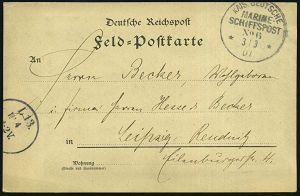 Deutsche Reichspost
KAIS. DEUTSCHE
MARINE-
SCHIFFSPOST
No 6
3/3
01
Feld-Postkarte
An
Herrn Becker, Wohlgeboren
i. Firma Herren Hesse & Becker
L. 13.
in Leipzig-Reudnitz
Wohnung
(Straße und Hausnummer)
Eilenburgerstr. 4.